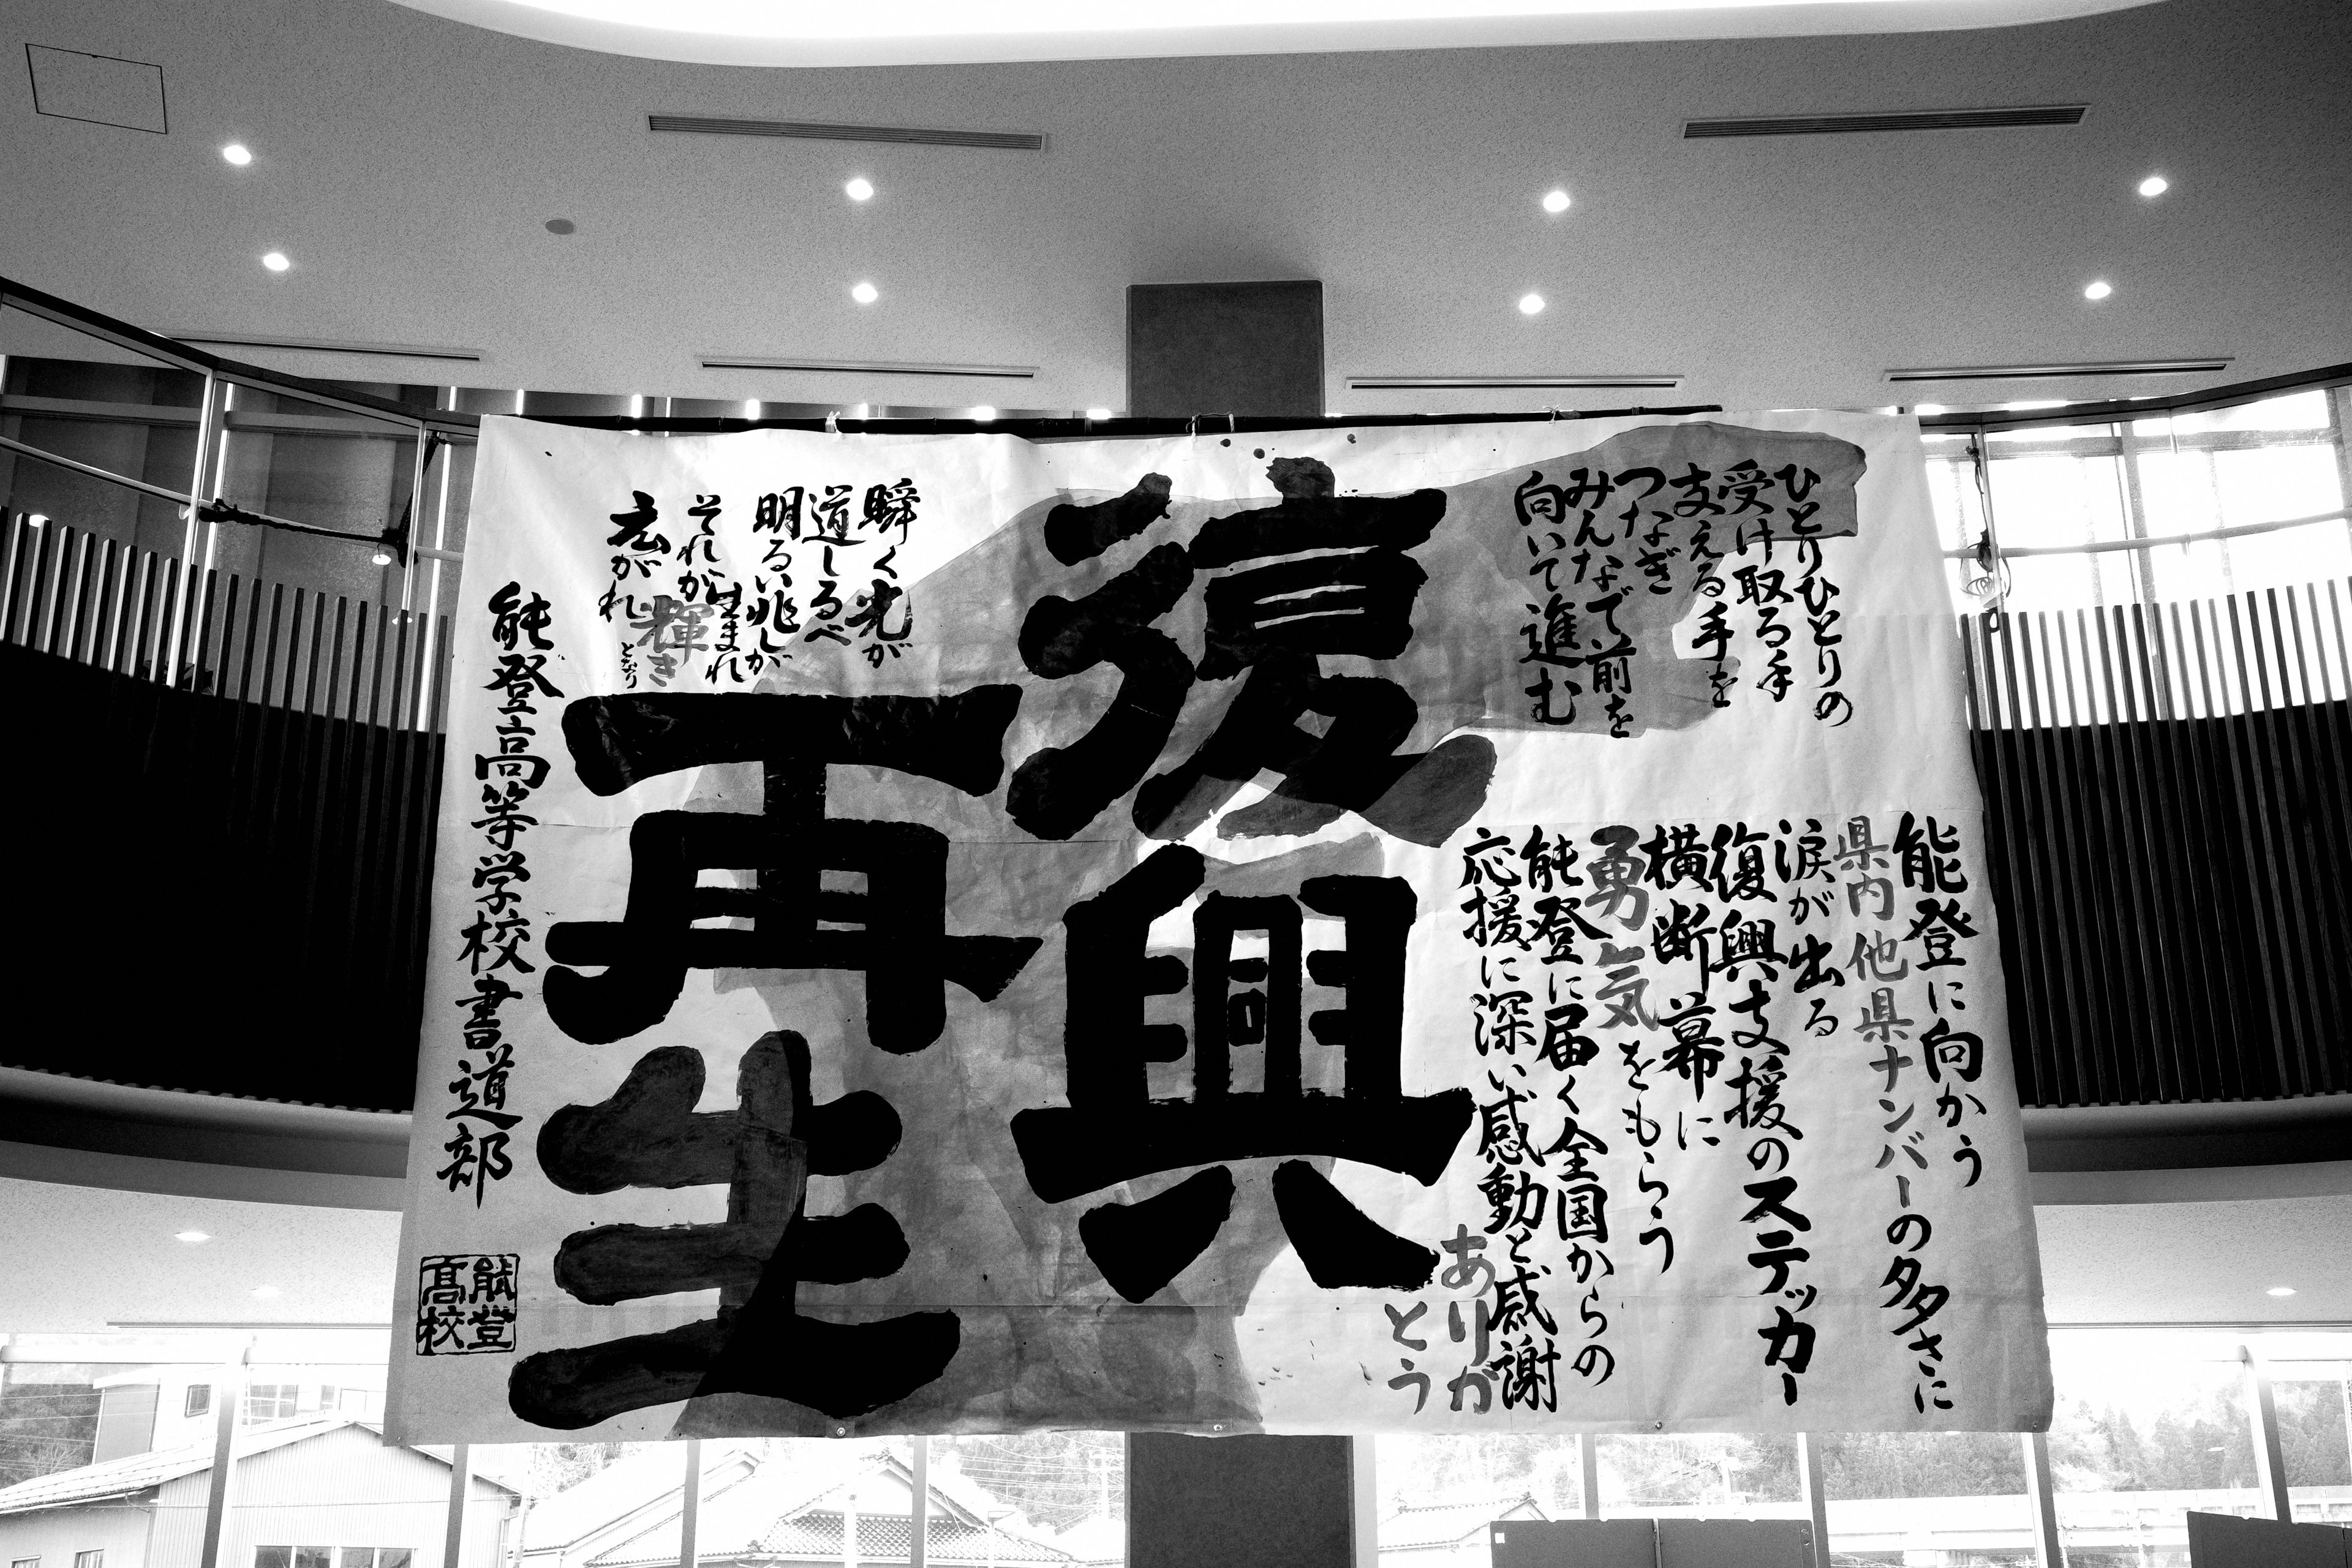 ひとりひとりの
受け取る手
支える手を
つなぎ
みんなで前を
向いて進む
能登に向かう
県内他県ナンバーの多さに
涙が出る
復興支援のステッカー
横断幕に
勇気をもらう
能登に届く全国からの
応援に深い感動と感謝
ありが
とう
復興
再生
瞬く光が
道しるべ
明るい兆しが
生まれ
それが輝き
広がれ
となり
能登高等学校書道部
能登
高校